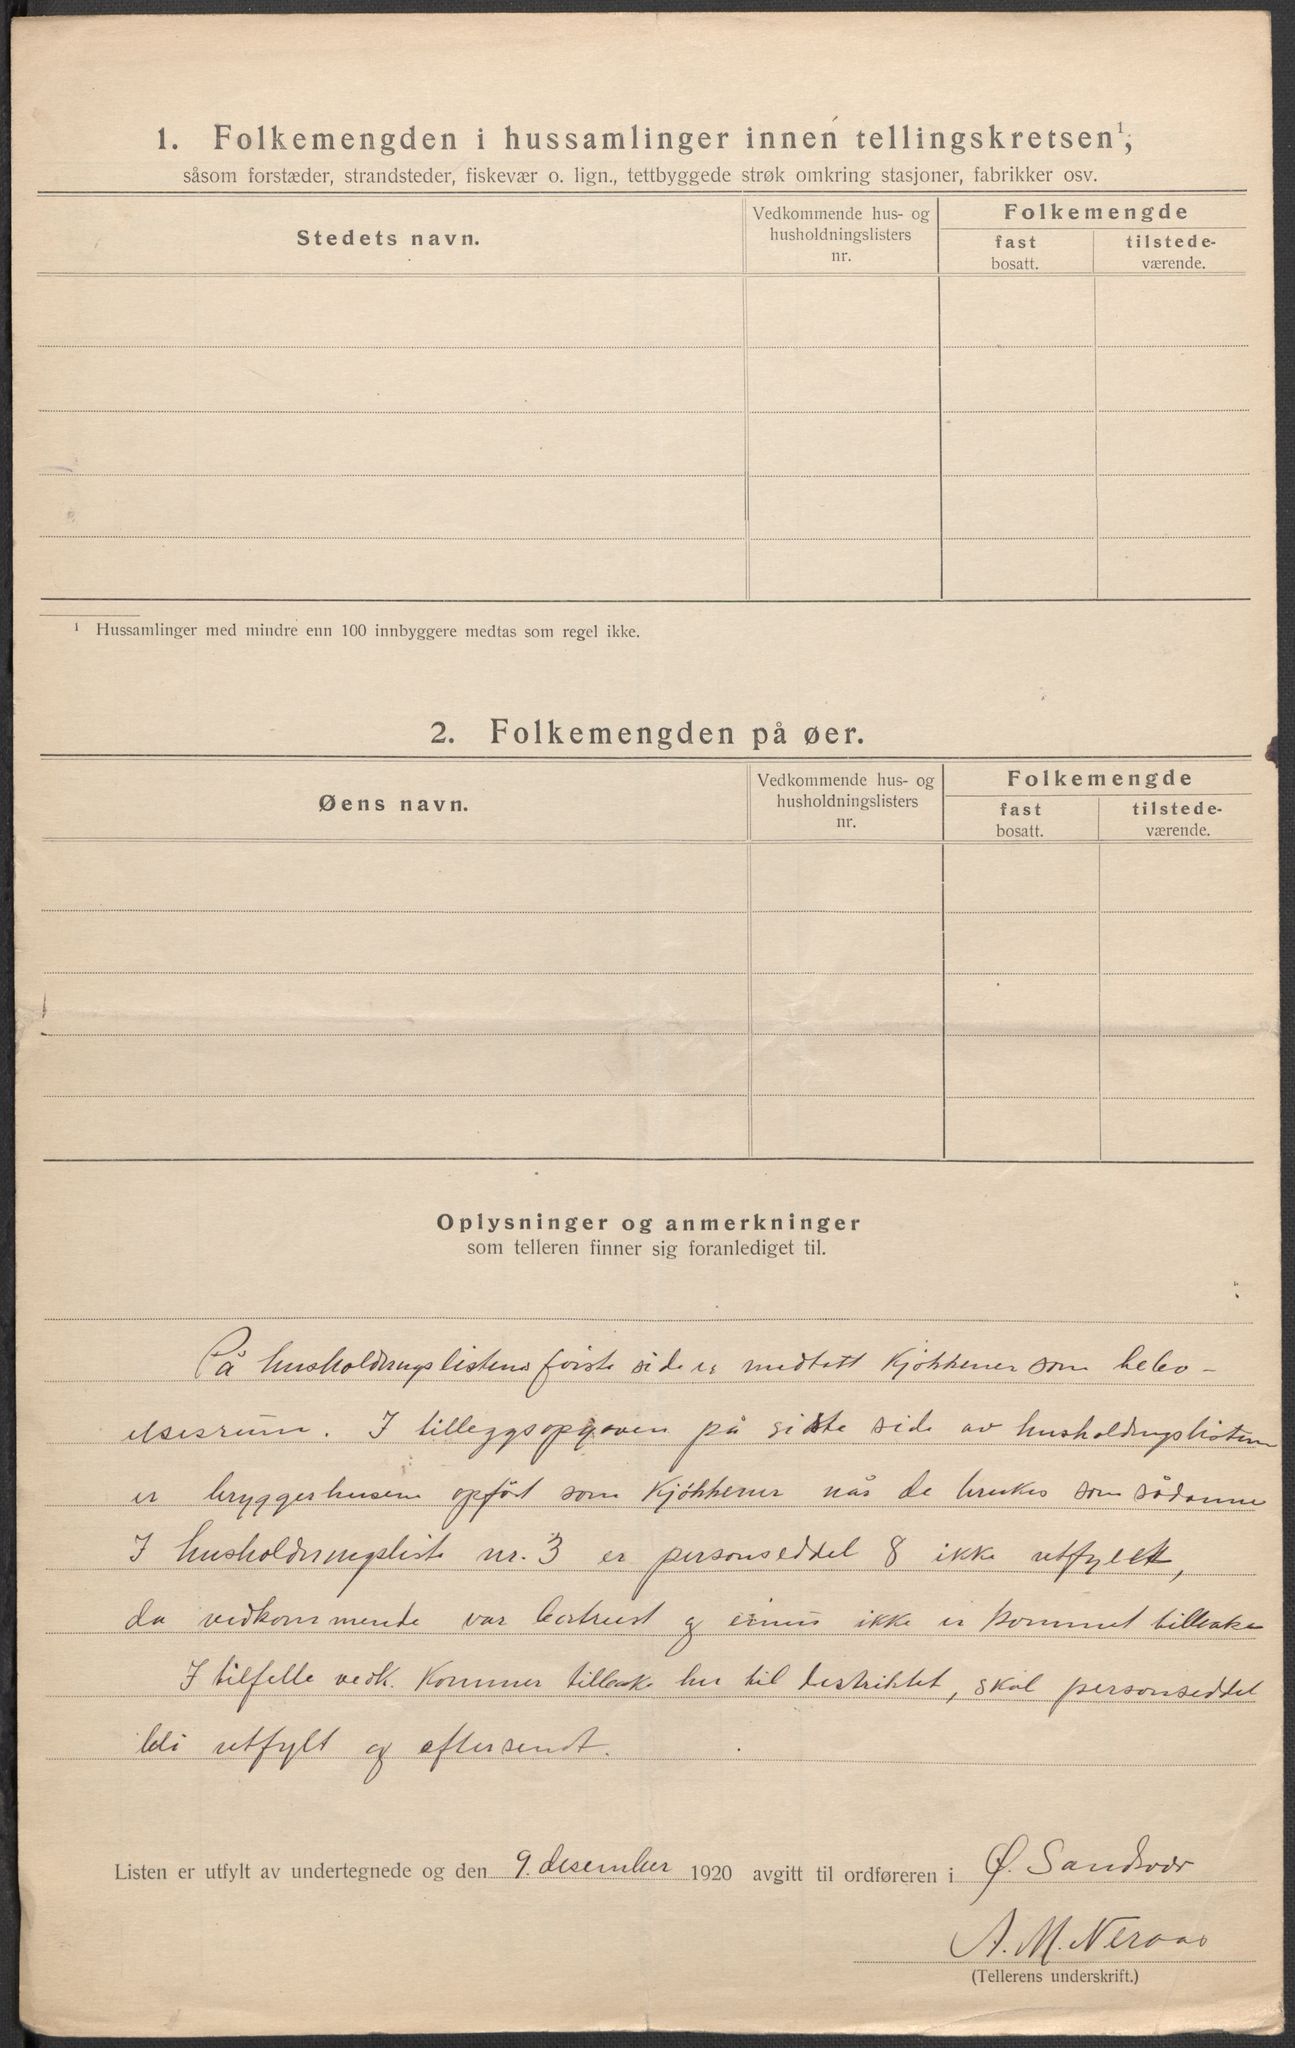 1. Folkemengden i hussamlinger innen tellingskretsen¹,
såsom forstæder, strandsteder, fiskevær o. lign., tettbyggede strøk omkring stasjoner, fabrikker osv.
Stedets navn.
Vedkommende hus- og
husholdningslisters
nr.
Folkemengde
fast
bosatt.
tilstede-
værende.
¹ Hussamlinger med mindre enn 100 innbyggere medtas som regel ikke.
2. Folkemengden på øer.
Øens navn.
Vedkommende hus- og
husholdningslisters
nr.
Folkemengde
fast
bosatt.
tilstede-
værende.
Oplysninger og anmerkninger
som telleren finner sig foranlediget til.
På husholdningslistens første side er medtatt kjøkkener som bebo-
elsesrum. I tilleggsopgaven på siste side av husholdningslisten
er bryggerhusene opført som kjøkkener når de brukes som sådanne
I husholdningsliste nr. 3 er personseddel 8 ikke utfyllt,
da vedkommende var bortreist og ennu ikke er kommet tilbake
I tilfelle vedk. kommer tilbake her til destriktet, skal personseddel
bli utfylt og eftersendt.
Listen er utfylt av undertegnede og den 9. desember 1920 avgitt til ordføreren i Ø. Sandsvær
A. M. Neraas
(Tellerens underskrift.)